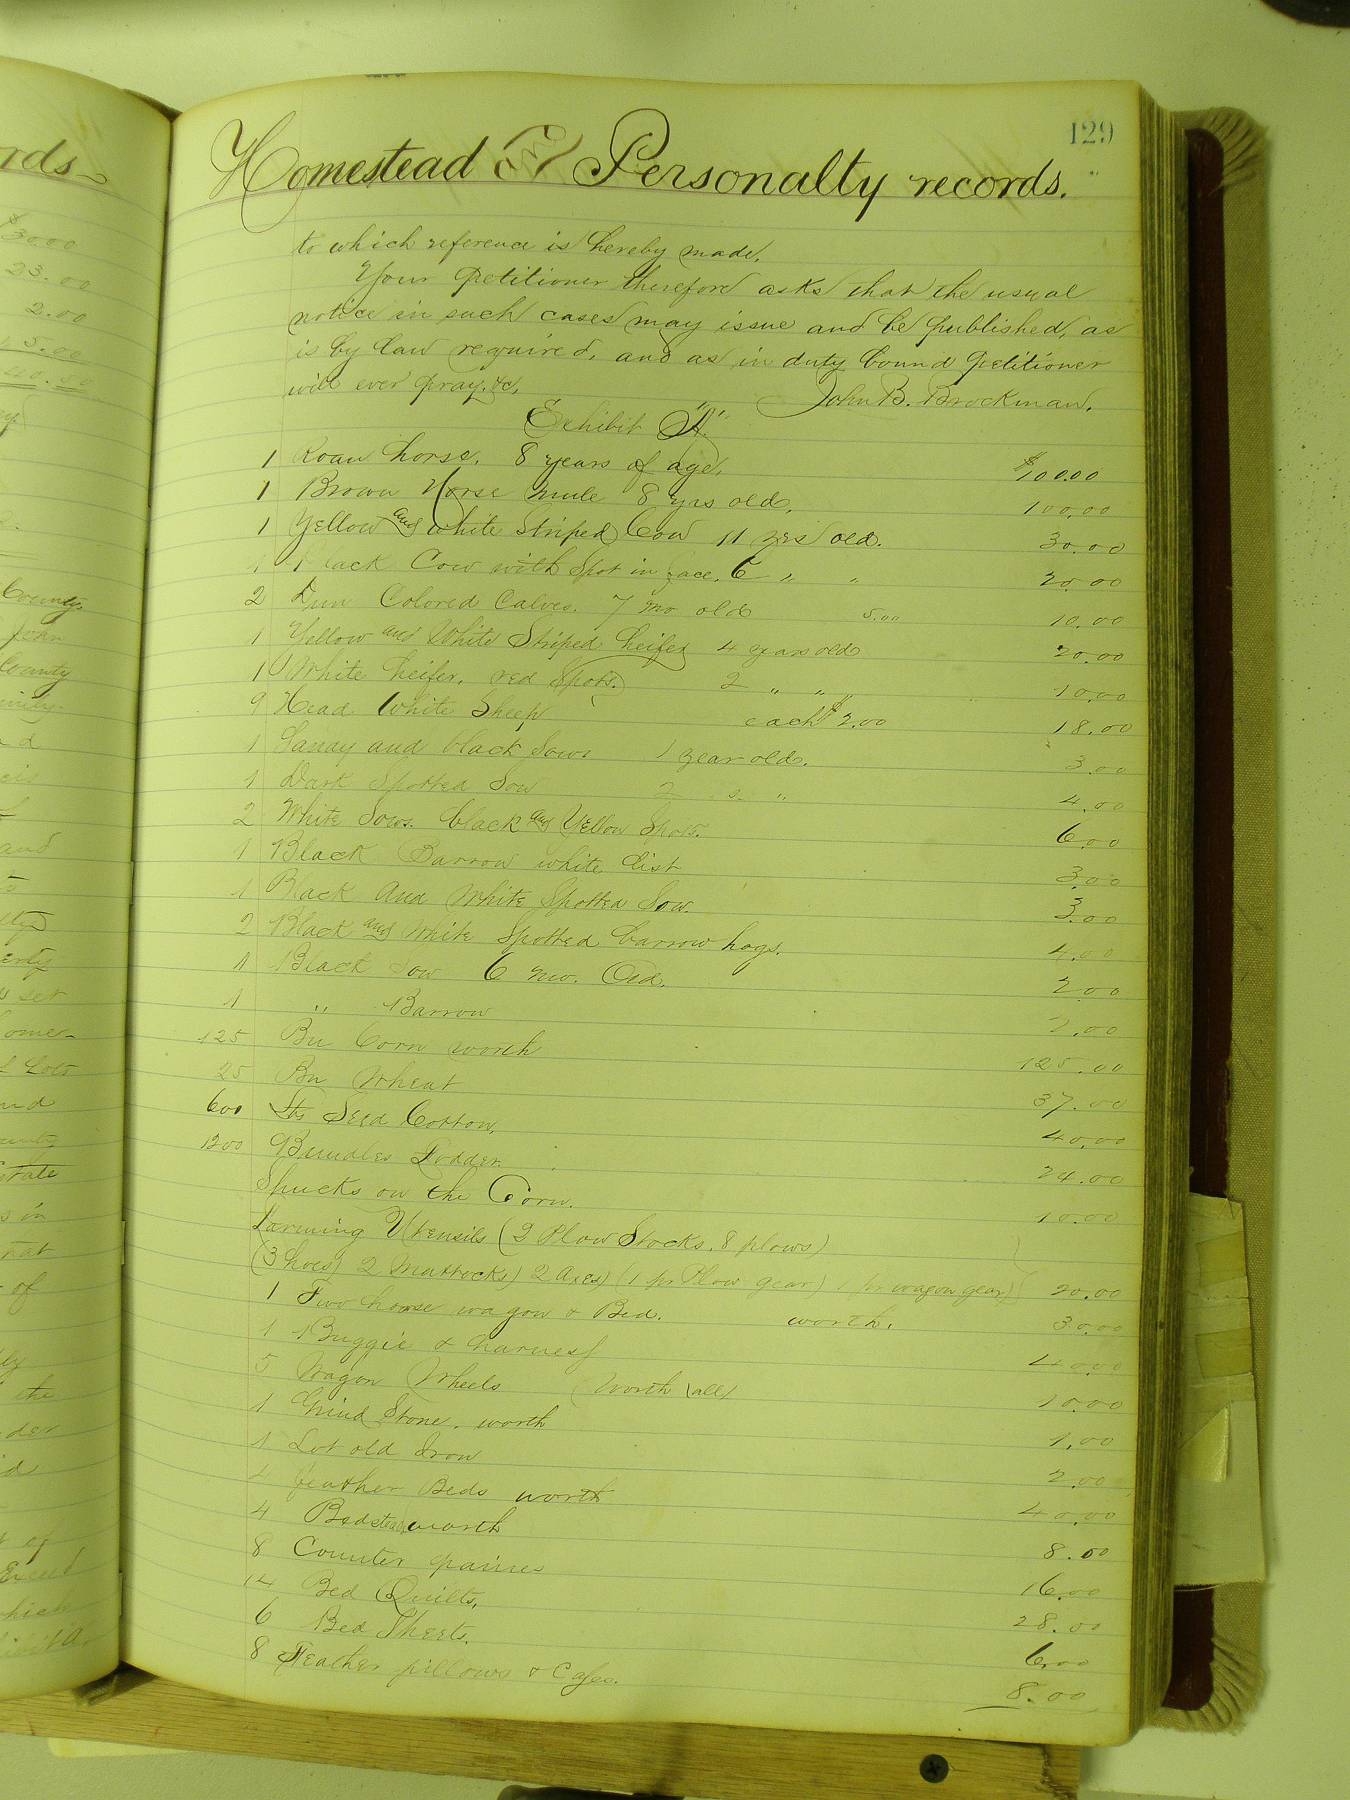 129
Homestead and Personalty records.
to which reference is hereby made.
Your petitioner therefore asks that the usual
notice in such cases may issue and be published, as
is by law required, and as in duty bound petitioner
will ever pray. &c, John B. Brockman.
Exhibit "A."
1 Roan horse. 8 years of age. $100.00
1 Brown Horse mule 8 yrs old. 100.00
1 Yellow and white Striped Cow 11 yrs old. 30.00
1 Black Cow with Spot in face. 6 " " 20.00
2 Dun Colored Calves. 7 mo old 5.00 10.00
1 Yellow and White Striped heifer 4 years old 20.00
1 White heifer. red Spots. 2 " " 10.00
9 Head White Sheep each $2.00 18.00
1 Sandy and black Sow 1 year old. 3.00
1 Dark Spotted Sow 2 " 4.00
2 White Sows. black and Yellow Spots. 6.00
1 Black Barrow white list 3.00
1 Black and White Spotted Sow. 3.00
2 Black and White Spotted barrow hogs. 4.00
1 Black Sow 6 mo. Old. 2.00
1 " Barrow 2.00
125 Bu Corn worth 125.00
25 Bu Wheat 37.00
600 lbs Seed Cotton. 40.00
1200 Bundles Fodder 24.00
Shucks on the Corn. 10.00
Farming Utensils (2 Plow Stocks. 8 plows)
(3 hoes) 2 Mattocks) 2 axes) (1 pr Plow gear) 1 pr wagon gear) 20.00
1 Two horse wagon & Bed. worth. 30.00
1 Buggie & harness 40.00
5 Wagon Wheels (worth all) 10.00
1 Grind Stone. worth 1.00
1 Lot old Iron 2.00
4 feather Beds worth 40.00
4 Bedstead worth 8.00
8 Counter paines 16.00
14 Bed Quilts. 28.00
6 Bed Sheets. 6.00
8 Feather pillows & Cases. 8.00